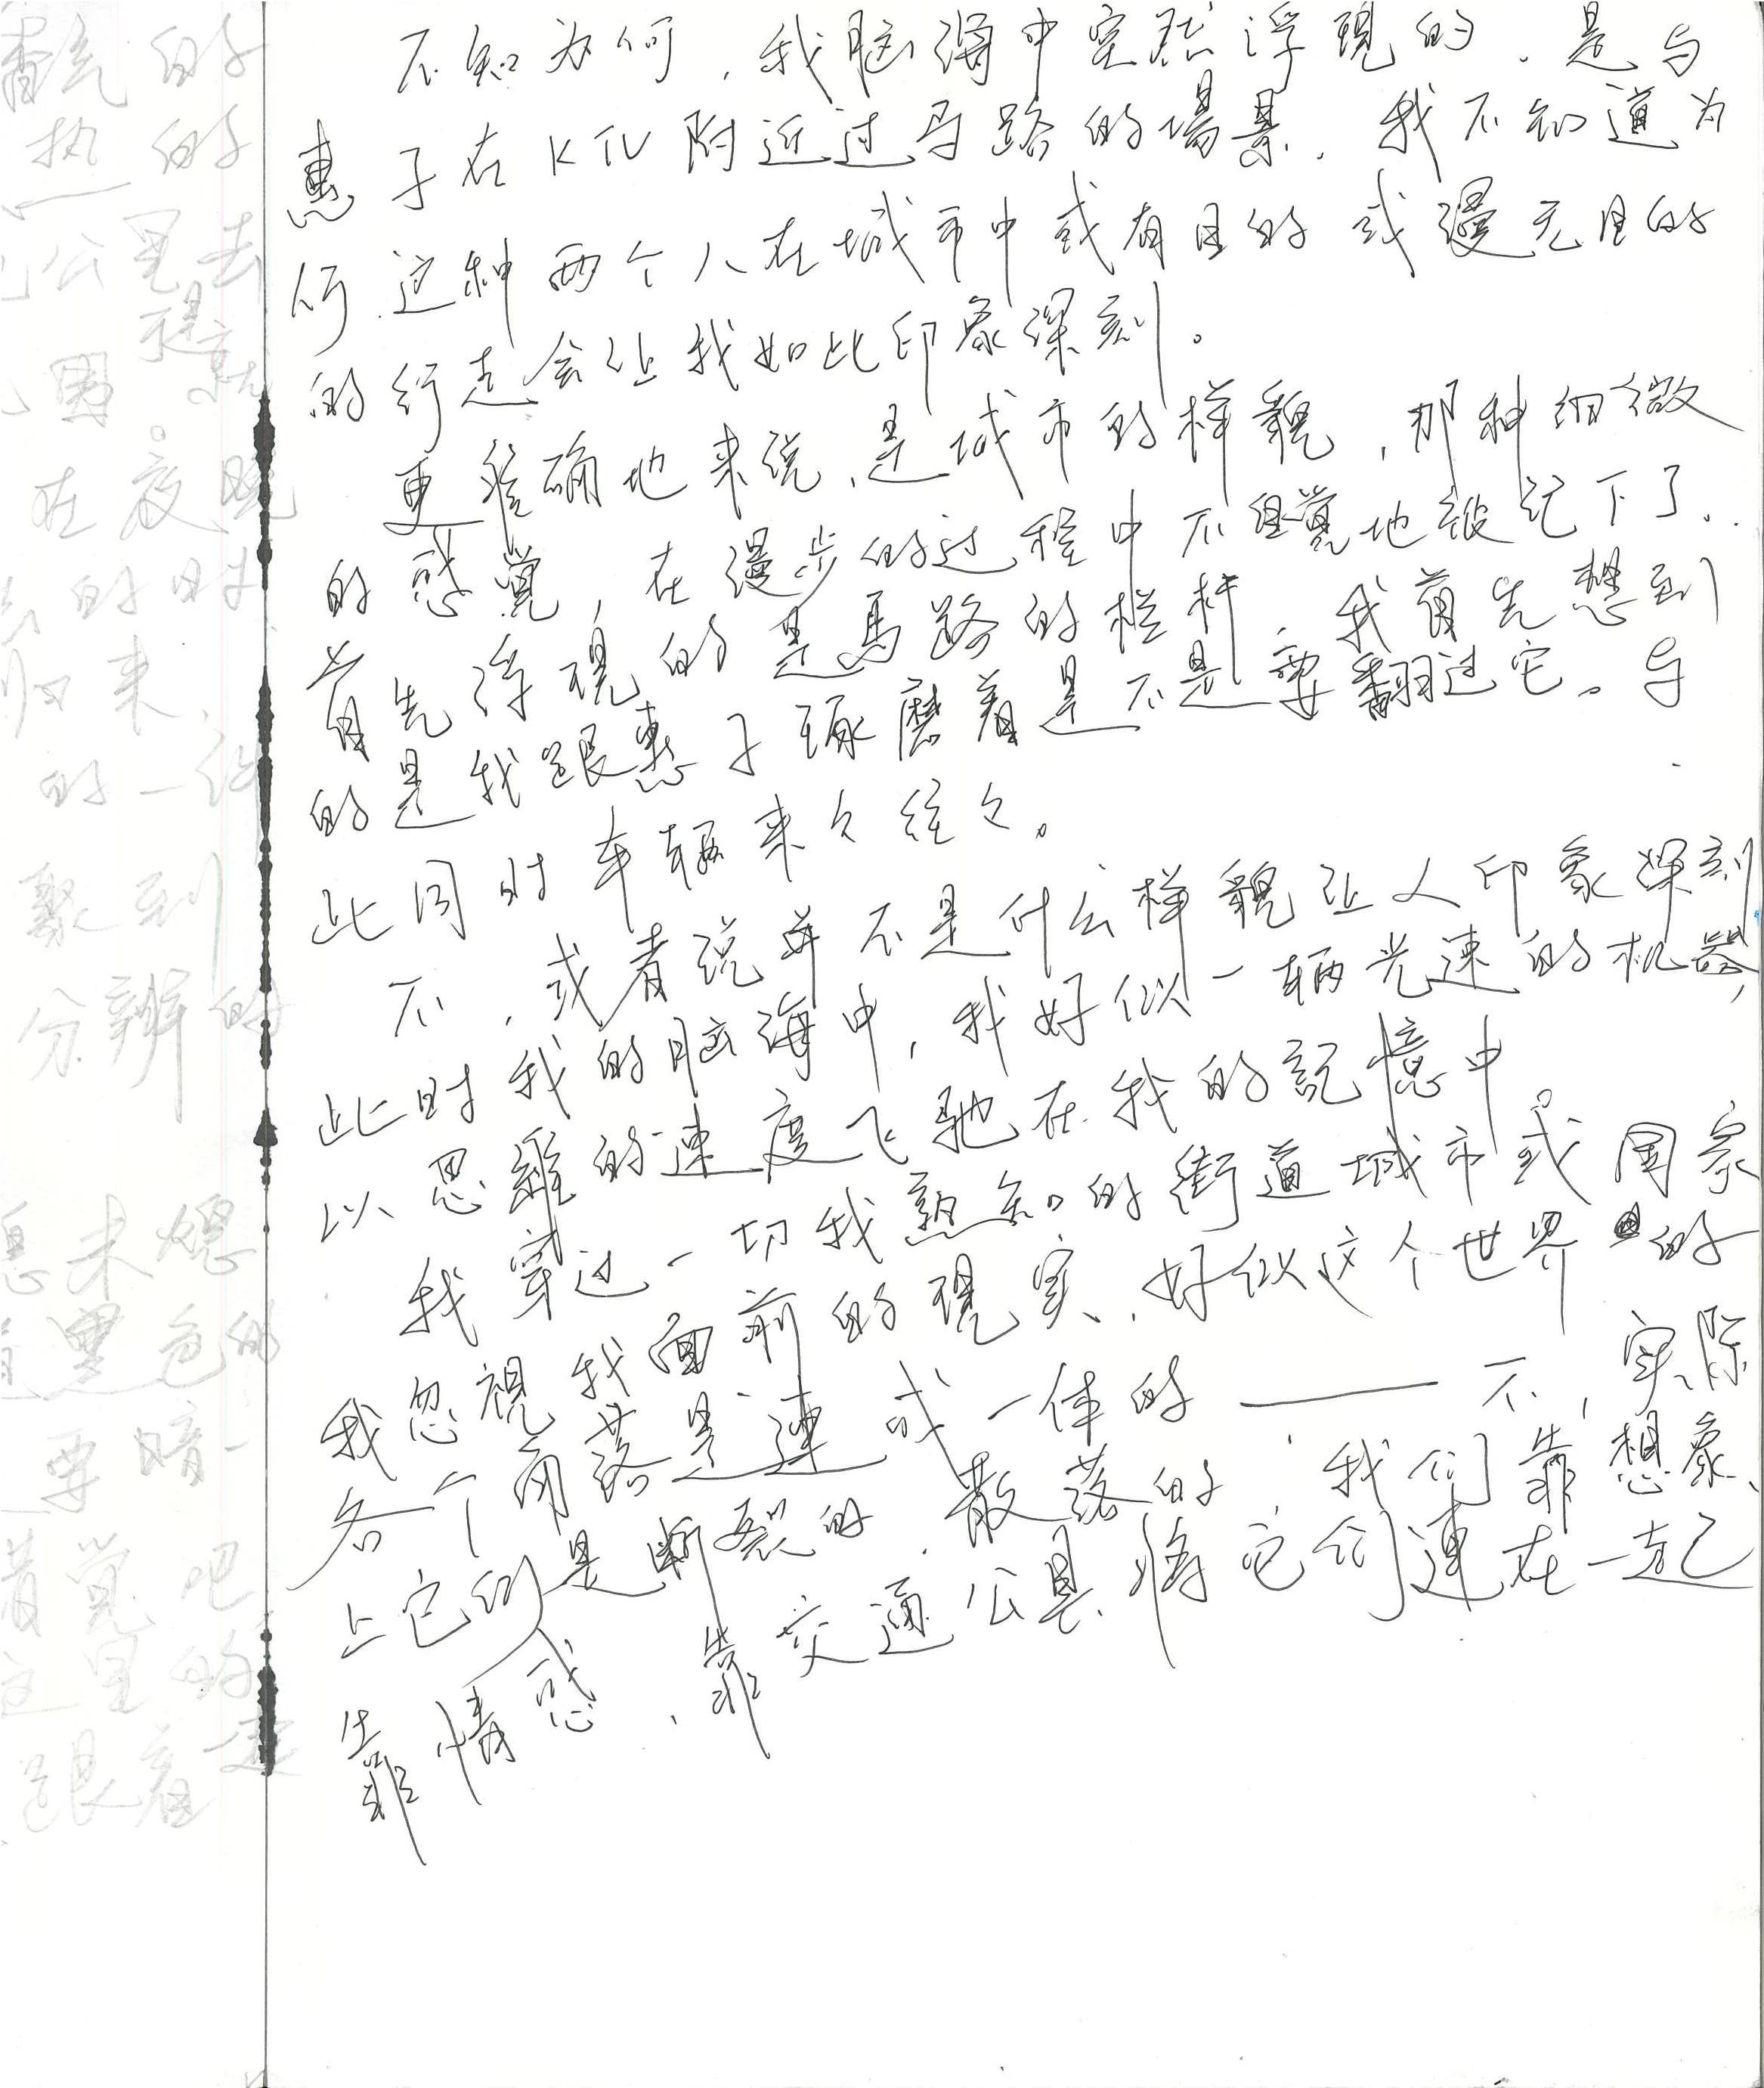 不知为何，我脑海中突然浮現的，是与
惠子在KTV附近过马路的場景，我不知道为
何这种两个人在城市中或有目的或漫无目的
的行走会让我如此印象深刻。
更准确地来说，是城市的样貌，那种细微
的感覺，在漫步的过程中不自覺地被记下了。
首先浮現的是馬路的栏杆，我首先想到
的是我跟惠子琢磨着是不是要翻过它。与
此同时车辆来々往々。
不，或者说并不是什么样貌让人印象深刻
此时我的脑海中，我好似一辆光速的机器，
以思維的速度飞驰在我的記憶中。
我穿过一切我熟知的街道城市或国家
我忽視我面前的現実，好似这个世界的
各个角落是連成一体的——不，実际
上它们是断裂的，散落的，我们靠想象、
靠情感、靠交通公具将它们連在一起
的
热的
公里去
在夜晚
的时
归来，
的一
聚到
分辨的
未熄
黑色的
要暗一
着觉吧
这里的
跟着一